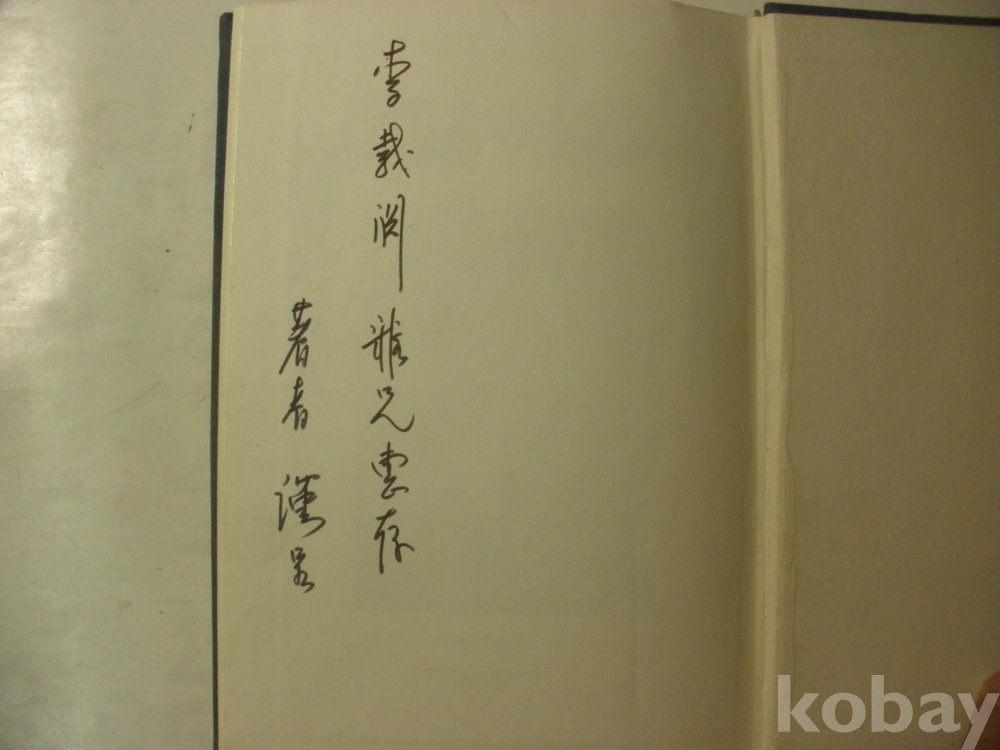 李載閏 雅兄惠存
著者 謹呈
kobay